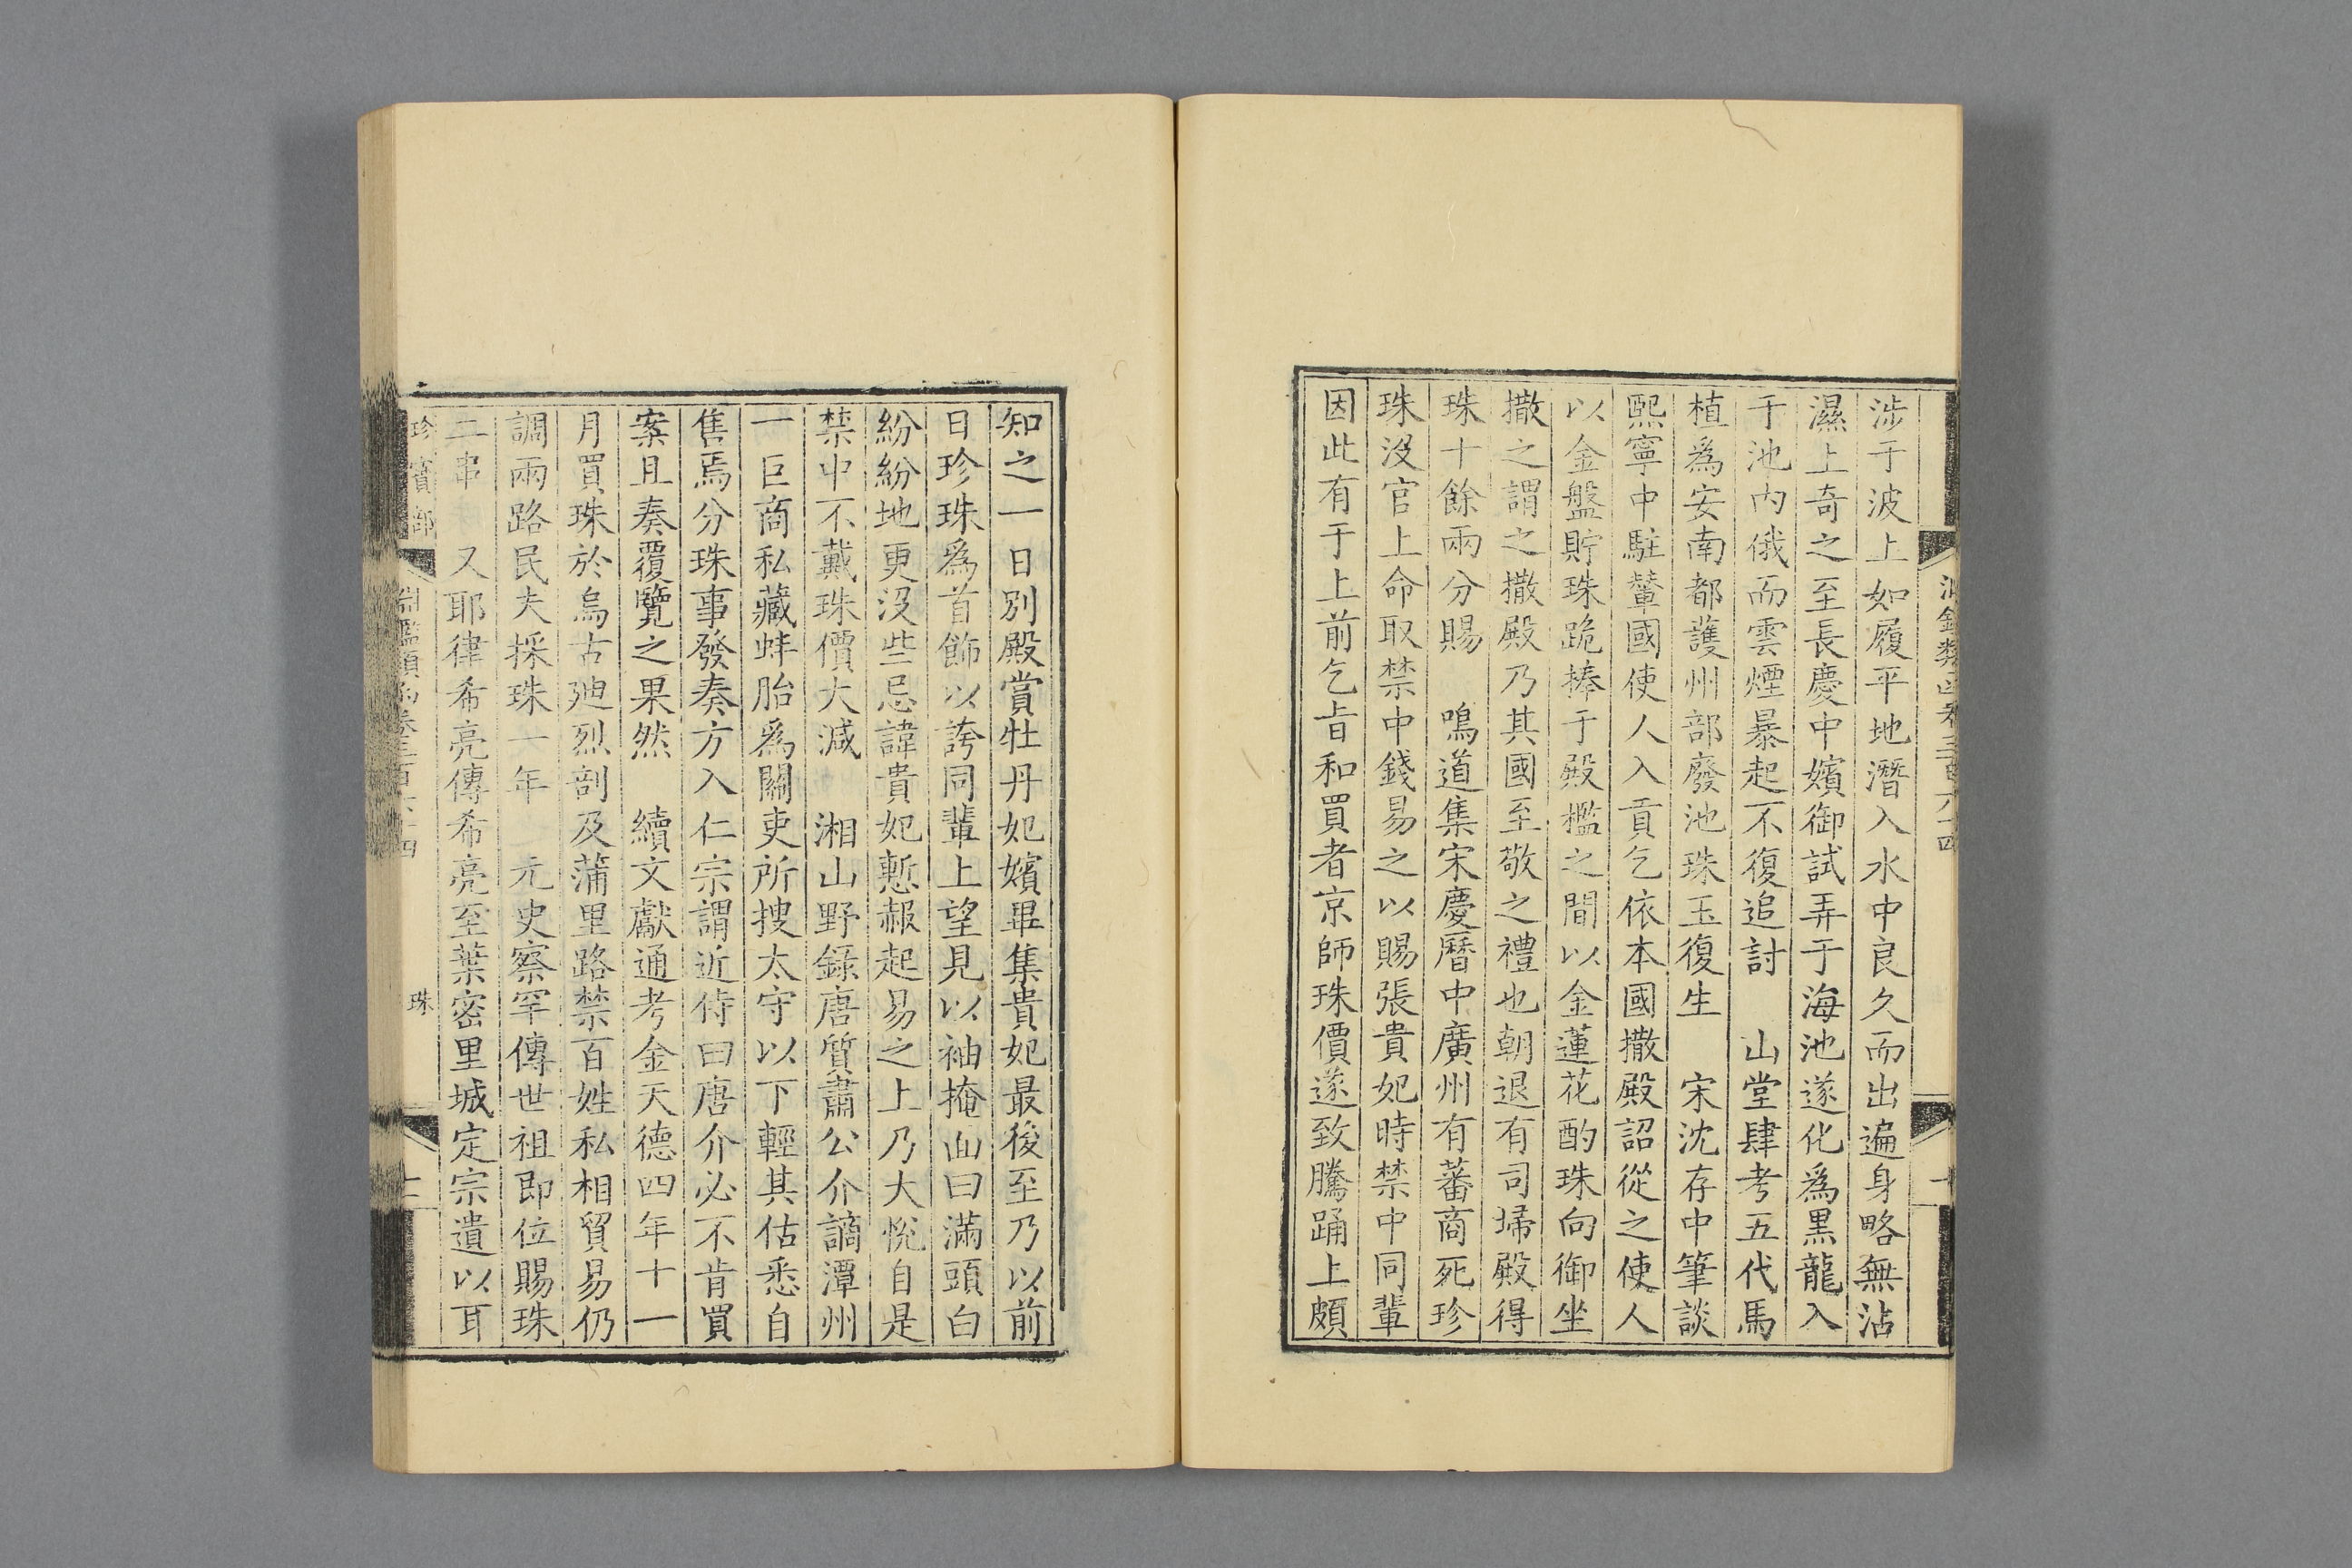 涉于波上如履平地潛入水中良久而出遍身略無沾
濕上奇之至長慶中嬪御試弄于海池遂化爲黑龍入
于池內俄而雲煙暴起不復追討　山堂肆考五代馬
植爲安南都護州部廢池珠玉復生　宋沈存中筆談
熙寧中駐輦國使人入貢乞依本國撒殿詔從之使人
以金盤貯珠跪捧于殿檻之間以金蓮花酌珠向御坐
撒之謂之撒殿乃其國至敬之禮也朝退有司埽殿得
珠十餘兩分賜　鳴道集宋慶曆中廣州有蕃商死珍
珠沒官上命取禁中錢易之以賜張貴妃時禁中同輩
因此有于上前乞旨和買者京師珠價遂致騰踊上頗
知之一日別殿賞牡丹妃嬪畢集貴妃最後至乃以前
日珍珠爲首飾以誇同輩上望見以袖掩面曰滿頭白
紛紛地更沒些忌諱貴妃慙赧起易之上乃大悅自是
禁中不戴珠價大減　湘山野錄唐質肅公介謫潭州
一巨商私藏蚌胎爲關吏所搜太守以下輕其估悉自
售焉分珠事發奏方入仁宗謂近侍曰唐介必不肯買
案且奏覆覽之果然　續文獻通考金天德四年十一
月買珠於烏古廸烈剖及蒲里路禁百姓私相貿易仍
調兩路民夫採珠一年　元史察罕傳世祖即位賜珠
二串　又耶律希亮傳希亮至葉密里城定宗遺以耳
珍寶部　淵鑑類函卷三百六十四　珠　十一